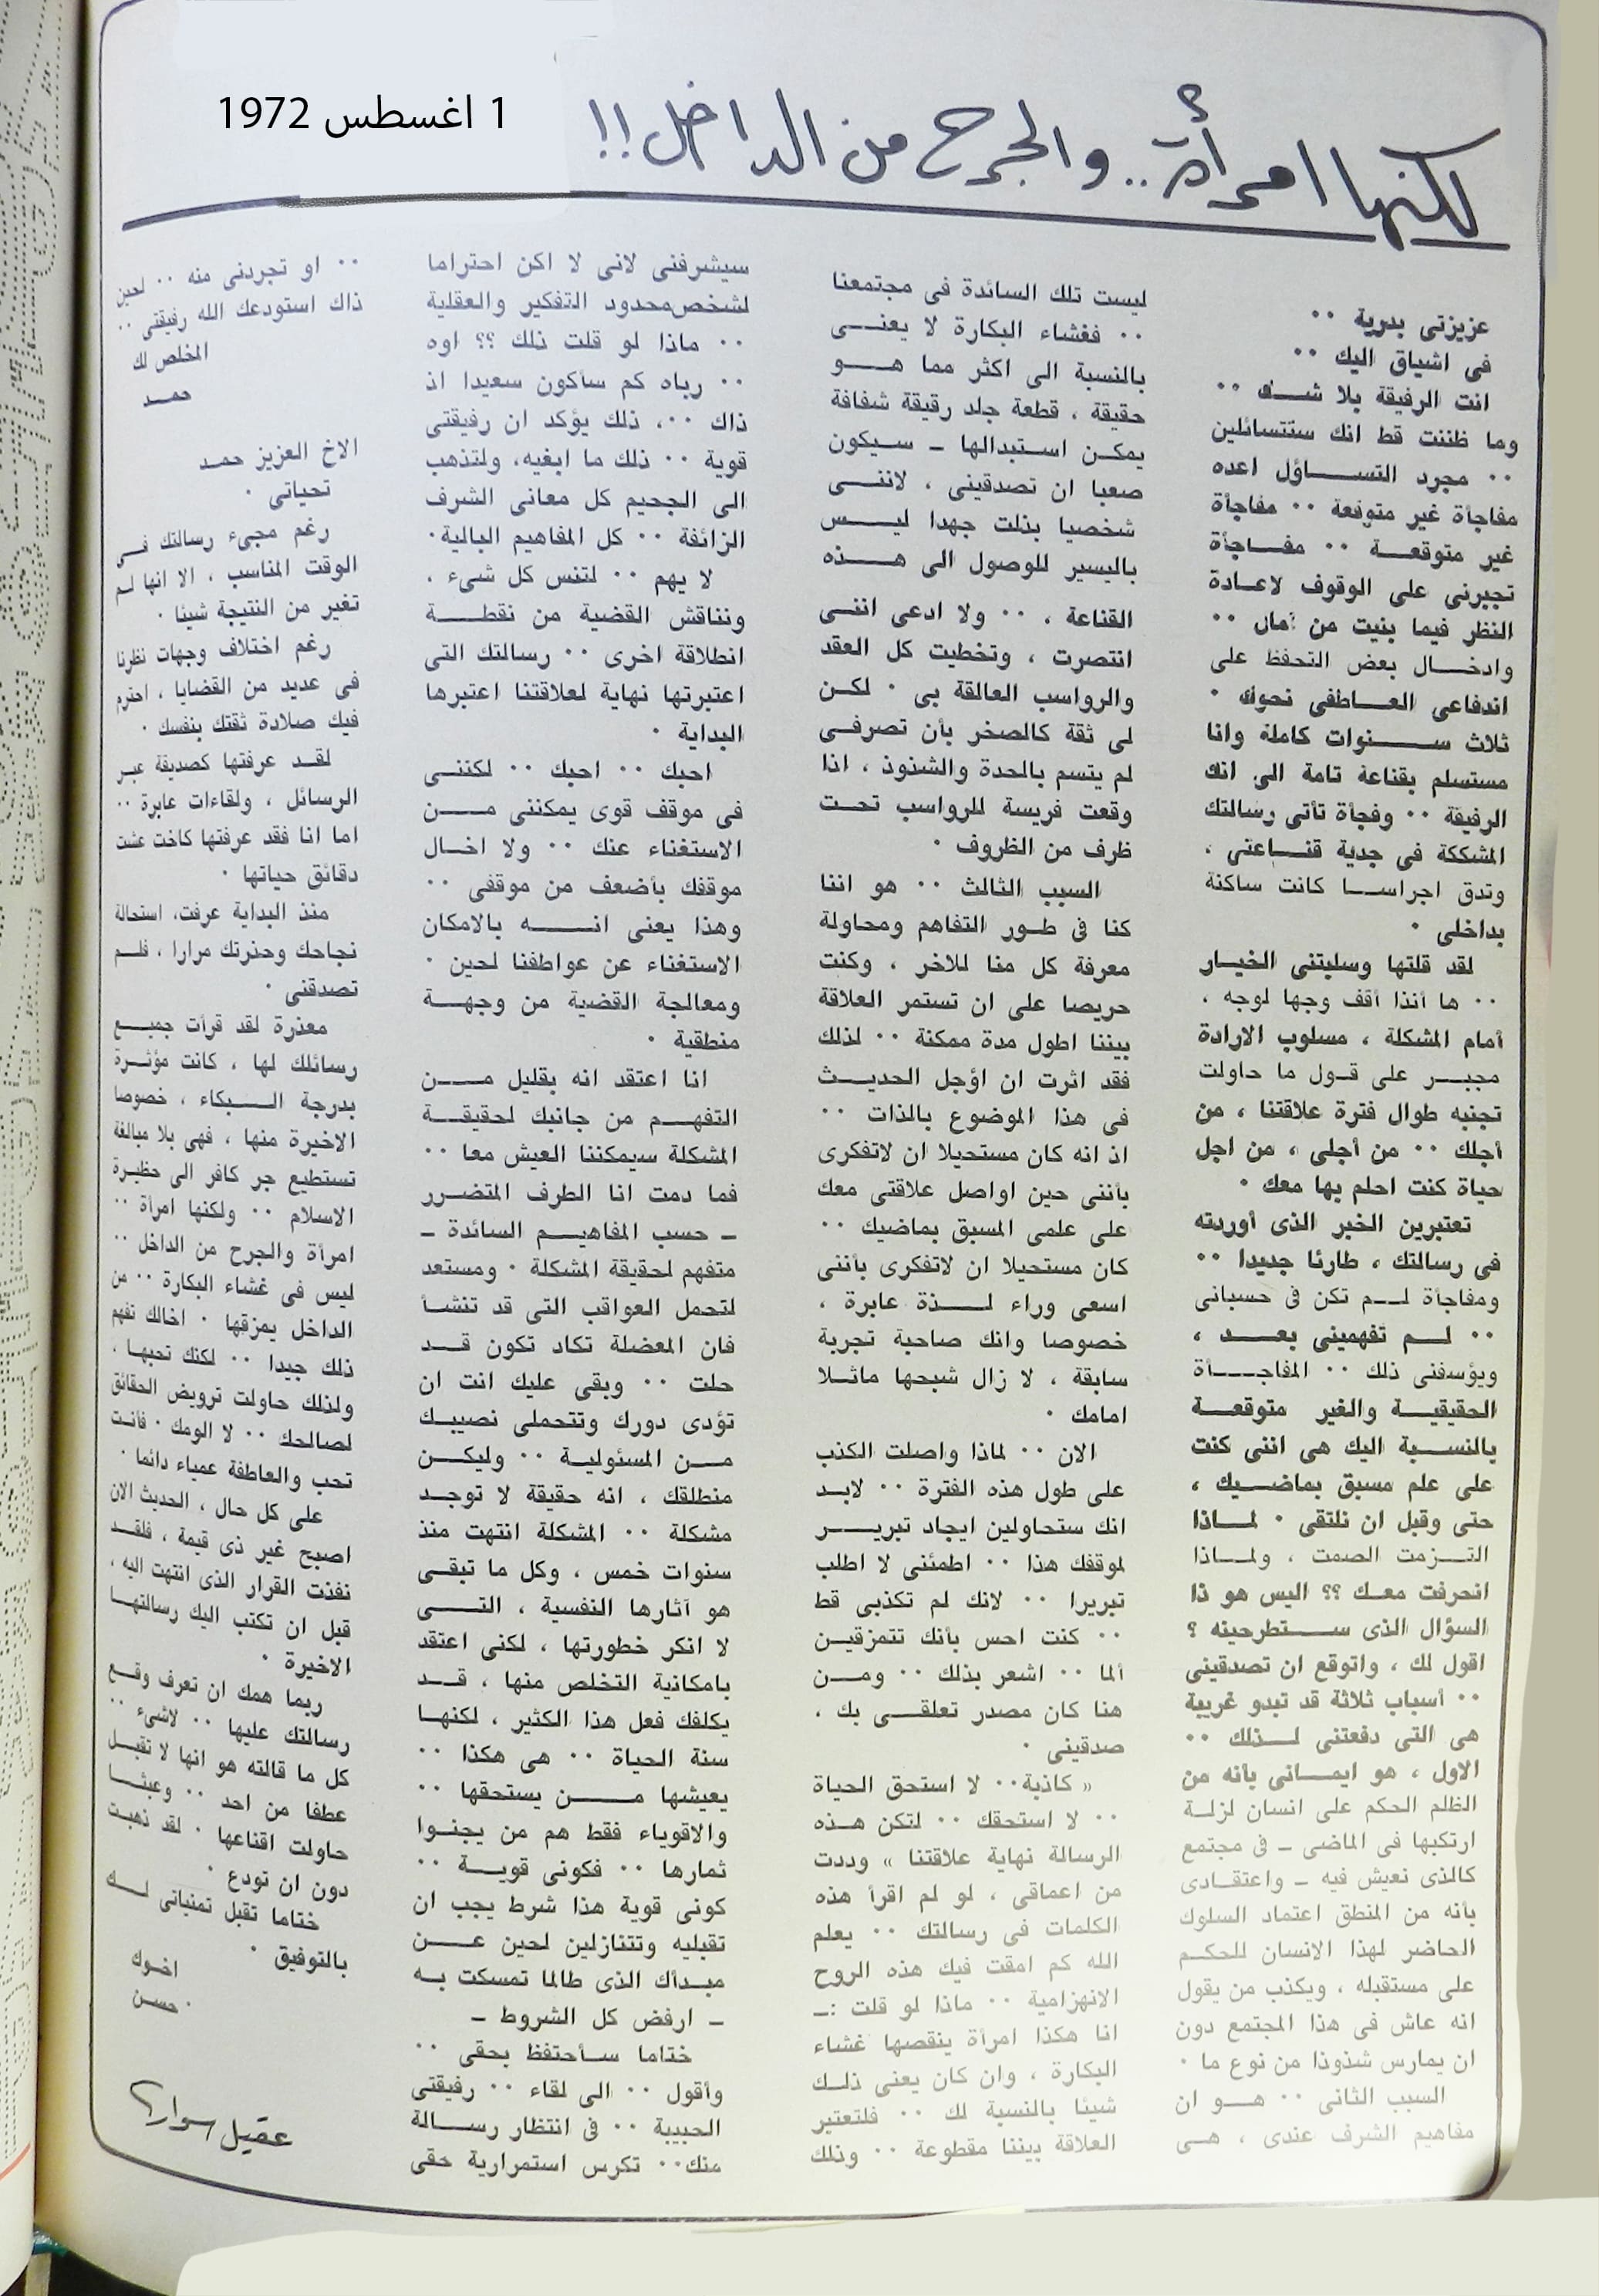 1 اغسطس 1972
لكنها امرأة .. والجرح من الداخل !!
عزيزتى بدرية ..
فى اشياق اليك ..
انت الرفيقة بلا شك ..
وما ظننت قط انك ستتسائلين
.. مجرد التساؤل اعده
مفاجأة غير متوقعة .. مفاجأة
غير متوقعة .. مفاجأة
تجبرنى على الوقوف لاعادة
النظر فيما بنيت من آمال ..
وادخال بعض التحفظ على
اندفاعى العاطفى نحوك .
ثلاث سنوات كاملة وانا
مستسلم بقناعة تامة الى انك
الرفيقة .. وفجأة تأتى رسالتك
المشككة فى جدية قناعتى ،
وتدق اجراسا كانت ساكنة
بداخلى .
لقد قلتها وسلبتنى الخيار
.. ها أنذا أقف وجها لوجه ،
أمام المشكلة ، مسلوب الارادة
مجبر على قول ما حاولت
تجنبه طوال فترة علاقتنا ، من
أجلك .. من أجلى ، من اجل
حياة كنت احلم بها معك .
تعتبرين الخبر الذى أوردته
فى رسالتك ، طارئا جديدا ..
ومفاجأة لم تكن فى حسبانى
.. لم تفهمينى بعد ،
ويؤسفنى ذلك .. المفاجأة
الحقيقية والغير متوقعة
بالنسبة اليك هى اننى كنت
على علم مسبق بماضيك ،
حتى وقبل ان نلتقى . لماذا
التزمت الصمت ، ولماذا
انحرفت معك ؟؟ اليس هو ذا
السؤال الذى ستطرحينه ؟
اقول لك ، واتوقع ان تصدقينى
.. أسباب ثلاثة قد تبدو غريبة
هى التى دفعتنى لذلك ..
الاول ، هو ايمانى بأنه من
الظلم الحكم على انسان لزلة
ارتكبها فى الماضى ـ فى مجتمع
كالذى نعيش فيه ـ واعتقادى
بأنه من المنطق اعتماد السلوك
الحاضر لهذا الانسان للحكم
على مستقبله ، ويكذب من يقول
انه عاش فى هذا المجتمع دون
ان يمارس شذوذا من نوع ما .
السبب الثانى .. هو ان
مفاهيم الشرف عندى ، هى
ليست تلك السائدة فى مجتمعنا
.. فغشاء البكارة لا يعنى
بالنسبة الى اكثر مما هو
حقيقة ، قطعة جلد رقيقة شفافة
يمكن استبدالها ـ سيكون
صعبا ان تصدقينى ، لاننى
شخصيا بذلت جهدا ليس
باليسير للوصول الى هذه
القناعة ، .. ولا ادعى اننى
انتصرت ، وتخطيت كل العقد
والرواسب العالقة بى . لكن
لى ثقة كالصخر بأن تصرفى
لم يتسم بالحدة والشذوذ ، اذا
وقعت فريسة للرواسب تحت
ظرف من الظروف .
السبب الثالث .. هو اننا
كنا فى طور التفاهم ومحاولة
معرفة كل منا للاخر ، وكنت
حريصا على ان تستمر العلاقة
بيننا اطول مدة ممكنة .. لذلك
فقد اثرت ان اؤجل الحديث
فى هذا الموضوع بالذات ..
اذ انه كان مستحيلا ان لاتفكرى
بأننى حين اواصل علاقتى معك
على علمى المسبق بماضيك ..
كان مستحيلا ان لاتفكرى بأننى
اسعى وراء لذة عابرة ،
خصوصا وانك صاحبة تجربة
سابقة ، لا زال شبحها ماثلا
امامك .
الان .. لماذا واصلت الكذب
على طول هذه الفترة .. لابد
انك ستحاولين ايجاد تبرير
لموقفك هذا .. اطمئنى لا اطلب
تبريرا .. لانك لم تكذبى قط
.. كنت احس بأنك تتمزقين
ألما .. اشعر بذلك .. ومن
هنا كان مصدر تعلقى بك ،
صدقينى .
« كاذبة .. لا استحق الحياة
.. لا استحقك .. لتكن هذه
الرسالة نهاية علاقتنا » وددت
من اعماقى ، لو لم اقرأ هذه
الكلمات فى رسالتك .. يعلم
الله كم امقت فيك هذه الروح
الانهزامية .. ماذا لو قلت :ـ
انا هكذا امرأة ينقصها غشاء
البكارة ، وان كان يعنى ذلك
شيئا بالنسبة لك .. فلتعتبر
العلاقة بيننا مقطوعة .. وذلك
سيشرفنى لانى لا اكن احتراما
لشخص محدود التفكير والعقلية
.. ماذا لو قلت ذلك ؟؟ اوه
.. رباه كم سأكون سعيدا اذ
ذاك ..، ذلك يؤكد ان رفيقتى
قوية .. ذلك ما ابغيه، ولتذهب
الى الجحيم كل معانى الشرف
الزائفة .. كل المفاهيم البالية.
لا يهم .. لتنس كل شىء ،
ونناقش القضية من نقطة
انطلاقة اخرى .. رسالتك التى
اعتبرتها نهاية لعلاقتنا اعتبرها
البداية .
احبك .. احبك .. لكننى
فى موقف قوى يمكننى من
الاستغناء عنك .. ولا اخال
موقفك بأضعف من موقفى ..
وهذا يعنى انه بالامكان
الاستغناء عن عواطفنا لحين .
ومعالجة القضية من وجهة
منطقية .
انا اعتقد انه بقليل من
التفهم من جانبك لحقيقة
المشكلة سيمكننا العيش معا ..
فما دمت انا الطرف المتضرر
ـ حسب المفاهيم السائدة ـ
متفهم لحقيقة المشكلة . ومستعد
لتحمل العواقب التى قد تنشأ
فان المعضلة تكاد تكون قد
حلت .. وبقى عليك انت ان
تؤدى دورك وتتحملى نصيبك
من المسئولية .. وليكن
منطلقك ، انه حقيقة لا توجد
مشكلة .. المشكلة انتهت منذ
سنوات خمس ، وكل ما تبقى
هو آثارها النفسية ، التى
لا انكر خطورتها ، لكنى اعتقد
بامكانية التخلص منها ، قد
يكلفك فعل هذا الكثير ، لكنها
سنة الحياة .. هى هكذا ..
يعيشها من يستحقها ..
والاقوياء فقط هم من يجنوا
ثمارها .. فكونى قوية ..
كونى قوية هذا شرط يجب ان
تقبليه وتتنازلين لحين عن
مبدأك الذى طالما تمسكت به
ـ ارفض كل الشروط ـ
ختاما سأحتفظ بحقى ..
وأقول .. الى لقاء .. رفيقتى
الحبيبة .. فى انتظار رسالة
منك .. تكرس استمرارية حقى
.. او تجردنى منه .. لحين
ذاك استودعك الله رفيقتى ..
المخلص لك
حمد
الاخ العزيز حمد
تحياتى .
رغم مجىء رسالتك فى
الوقت المناسب ، الا انها لم
تغير من النتيجة شيئا .
رغم اختلاف وجهات نظرنا
فى عديد من القضايا ، احترم
فيك صلادة ثقتك بنفسك .
لقد عرفتها كصديقة عبر
الرسائل ، ولقاءات عابرة ..
اما انا فقد عرفتها كاخت عشت
دقائق حياتها .
منذ البداية عرفت، استحالة
نجاحك وحذرتك مرارا ، فلم
تصدقنى .
معذرة لقد قرأت جميع
رسائلك لها ، كانت مؤثرة
بدرجة البكاء ، خصوصا
الاخيرة منها ، فهى بلا مبالغة
تستطيع جر كافر الى حظيرة
الاسلام .. ولكنها امرأة ..
امرأة والجرح من الداخل ..
ليس فى غشاء البكارة .. من
الداخل يمزقها . اخالك تفهم
ذلك جيدا .. لكنك تحبها ،
ولذلك حاولت ترويض الحقائق
لصالحك .. لا الومك . فأنت
تحب والعاطفة عمياء دائما .
على كل حال ، الحديث الان
اصبح غير ذى قيمة ، فلقد
نفذت القرار الذى انتهت اليه ،
قبل ان تكتب اليك رسالتها
الاخيرة .
ربما همك ان تعرف وقع
رسالتك عليها .. لاشىء ..
كل ما قالته هو انها لا تقبل
عطفا من احد .. وعبثا
حاولت اقناعها . لقد ذهبت
دون ان تودع .
ختاما تقبل تمنياتى لك
بالتوفيق .
اخوك
حسن .
عقيل سوار